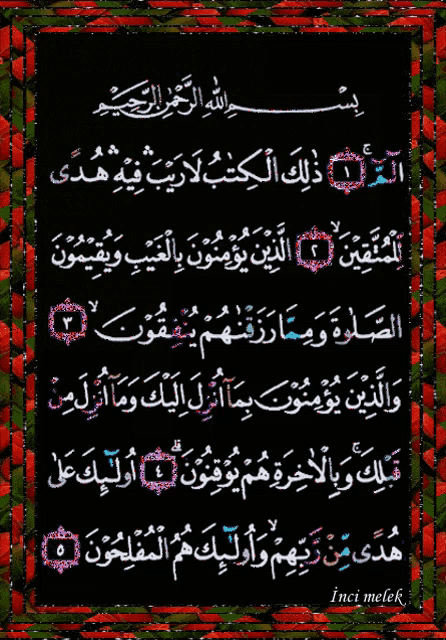 بِسْمِ اللهِ الرَّحْمٰنِ الرَّحِيْمِ
الٓمّٓ ۚ ﴿١﴾ ذٰلِكَ الْكِتٰبُ لَا رَيْبَ ۛ فِيْهِ ۛ هُدًى
لِّلْمُتَّقِيْنَ ۙ ﴿٢﴾ الَّذِيْنَ يُؤْمِنُوْنَ بِالْغَيْبِ وَيُقِيْمُوْنَ
الصَّلٰوةَ وَمِمَّا رَزَقْنٰهُمْ يُنْفِقُوْنَ ۙ ﴿٣﴾
وَالَّذِيْنَ يُؤْمِنُوْنَ بِمَآ اُنْزِلَ اِلَيْكَ وَمَآ اُنْزِلَ مِنْ
قَبْلِكَ ۚ وَبِالْاٰخِرَةِ هُمْ يُوْقِنُوْنَ ؕ ﴿٤﴾ اُولٰٓئِكَ عَلٰى
هُدًى مِّنْ رَّبِّهِمْ ۙ وَاُولٰٓئِكَ هُمُ الْمُفْلِحُوْنَ ﴿٥﴾
İnci melek